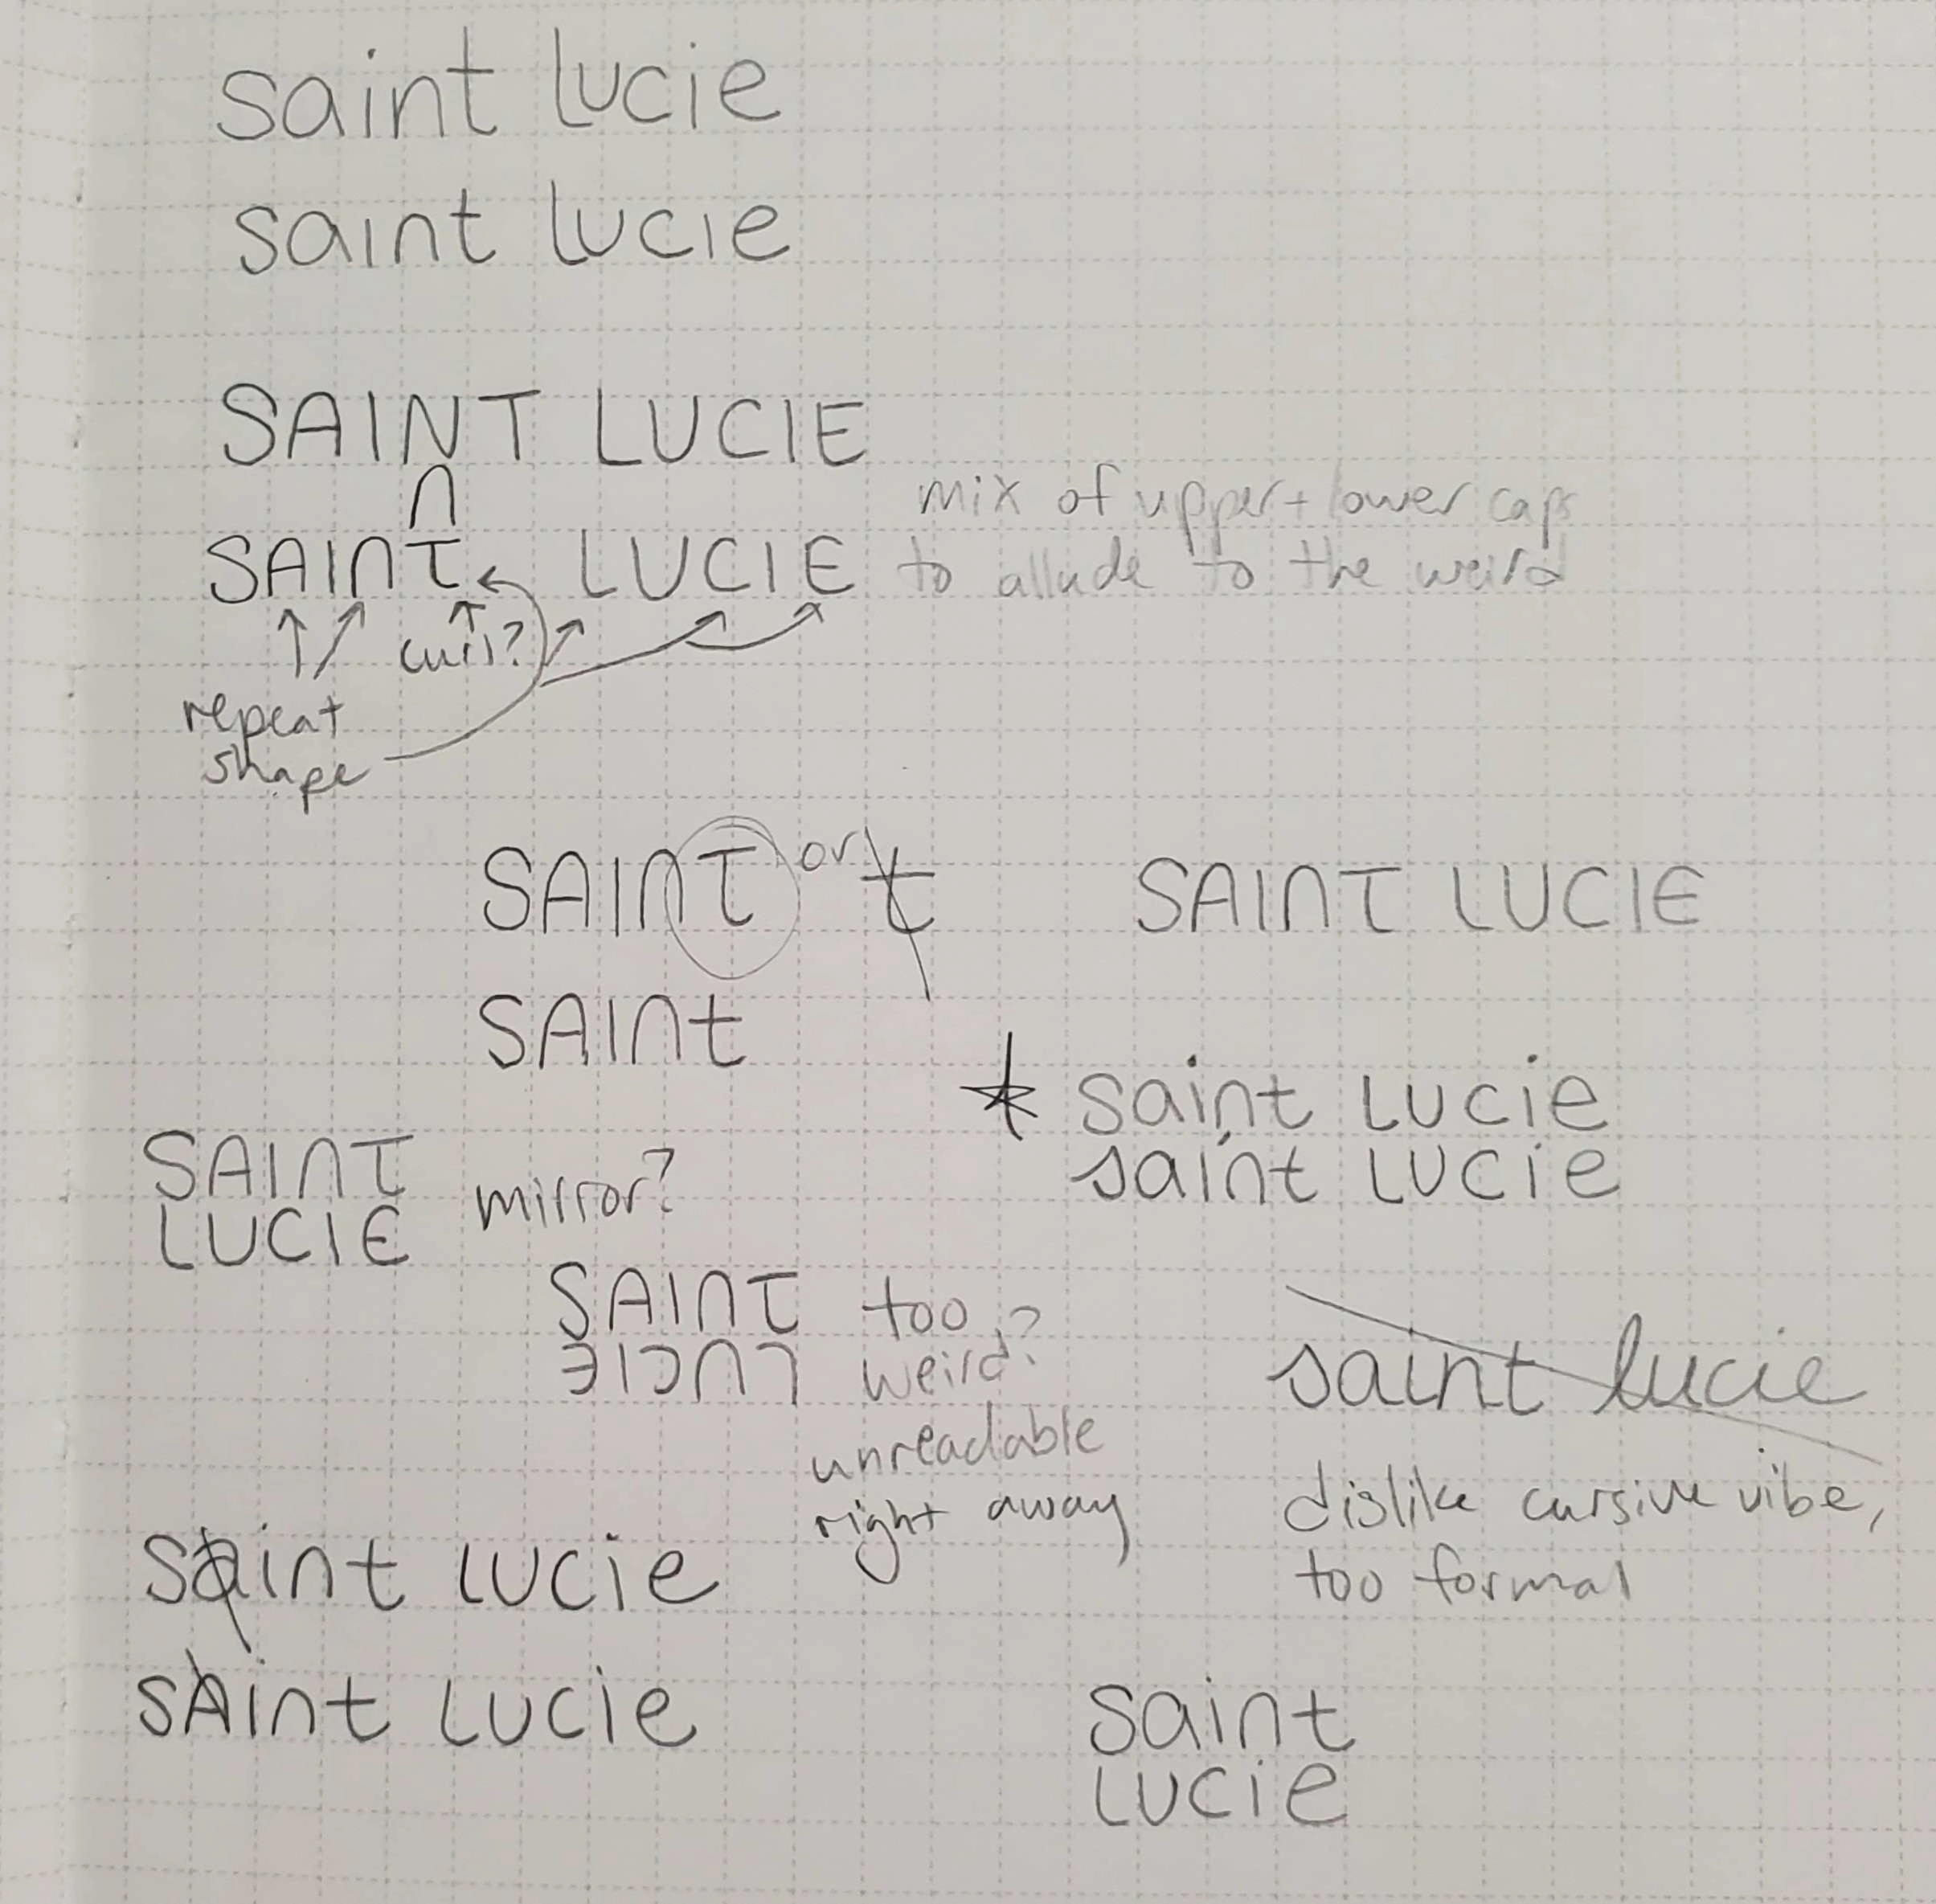 saint lucie
saint lucie
SAINT LUCIE
n
SAInT LUCIE
mix of upper + lower caps
to allude to the weird
curl?
repeat
shape
SAInT or t
SAINT LUCIE
SAInt
saint LUcie
saint LUcie
SAInT
LUCIE
mirror?
SAInT
LUCIE
too
weird?
unreadable
right away
saint lucie
dislike cursive vibe,
too formal
saint LUcie
sAint LUcie
saint
LUcie